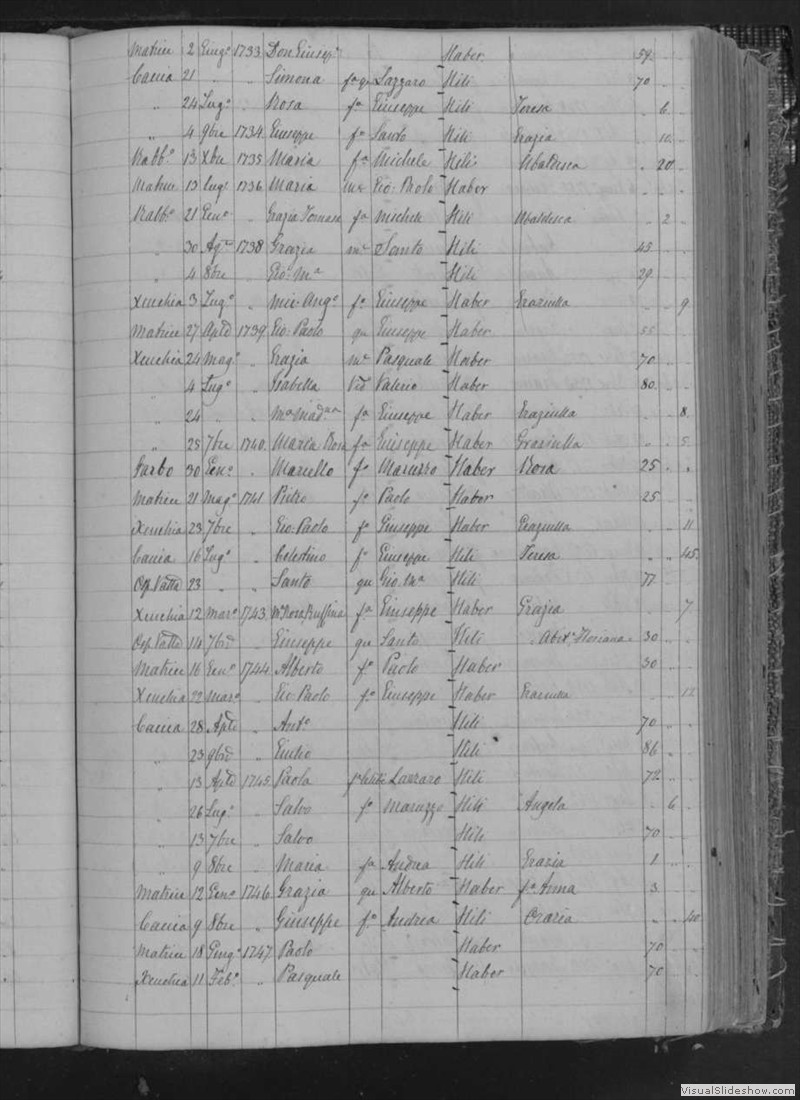 Matrice 2 Giug° 1733 Don Giusep. Haber 59 . .
Caccia 21 " " Simona fa qu Lazzaro Hili 70 . .
" 24 Lug° " Rosa fa Giuseppe Hili Teresa . 6 .
" 4 9bre 1734 Giuseppe fo Santo Hili Grazia . 10 .
Rabb° 13 Xbre 1735 Maria fa Michele Hili Ubaldesca . 20 .
Matrice 19 Lug° 1736 Maria Paolo Haber
Rabb° 21 Gen° " Grazia Tomasa fa Michele Hili Ubaldesca . 2
" 30 Ap 1738 Grazia Santo Hili 45 . .
" 4 8bre " Gio: Ma Hili 29 . .
Xeuchia 3 Lug° " Mic. Ang° fo Giuseppe Haber Graziulla . . 9
Matrice 27 1739 Gio: Paolo qu Giuseppe Haber 55 . .
Xeuchia 24 Mag° " Grazia Pasquale Haber 70 . .
" 4 Lug° " Isabella Vid Valerio Haber 80 . .
" 24 " " fa Giuseppe Haber Graziulla . . 8
" 25 7bre 1740 Maria Rosa fa Giuseppe Haber Graziulla . . 5
30 Gen° " Marcello fo Haber Rosa 25 . .
Matrice 21 Mag° 1741 Pietro fo Paolo Haber 25 . .
Xeuchia 23 7bre " Gio: Paolo fo Giuseppe Haber Graziulla . . 11
Caccia 16 Lug° " Celestino fo Giuseppe Hili Teresa . . 45
23 " " Santo qu Gio. Ma Hili 77 . .
Xeuchia 12 Mar° 1743 Ma Rosa Ruffina fa Giuseppe Haber Grazia . . 7
14 7bre " Giuseppe qu Santo Hili Floriana 30 . .
Matrice 16 Gen° 1744 Alberto fo Paolo Haber 30 . .
Xeuchia 22 Mar° " Gio Paolo fo Giuseppe Haber . . 12
Caccia 28 " Ant° Hili 70 . .
" 23 9bre " Giulio Hili 86 . .
" 13 1745 Paola Lazzaro Hili 72 . .
" 26 Lug° " Salvo fo Hili Angela . 6 .
" 13 7bre " Salvo Hili 70 . .
" 9 8bre " Maria fa Andrea Hili Grazia 1 . .
Matrice 12 Gen° 1746 Grazia qu Alberto Haber fa Anna 3 . .
Caccia 9 8bre " Giuseppe fo Andrea Hili . . 40
Matrice 18 Giug° 1747 Paolo Haber 70 . .
Xeuchia 11 Feb° " Pasquale Haber 70 . .
VisualSlideshow.com